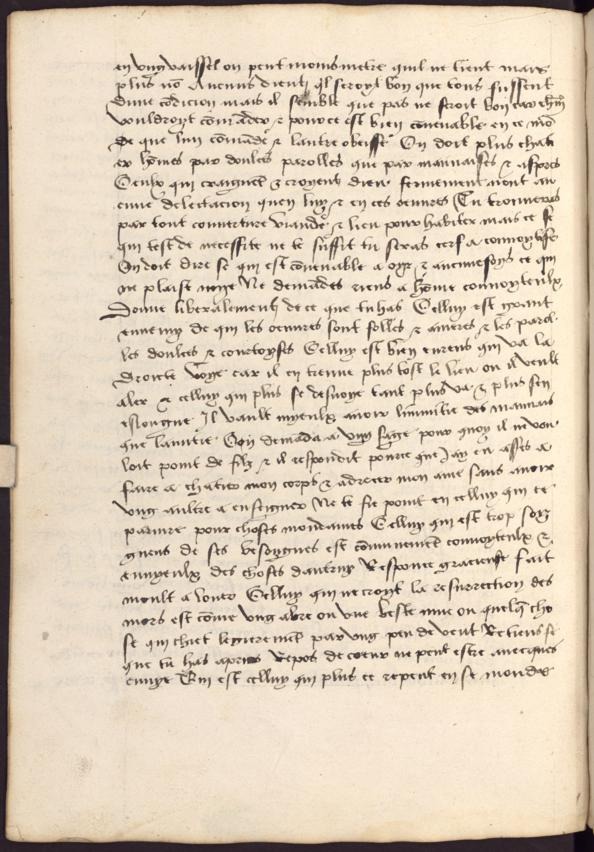 en ung vaissel on peut moins metre quil ne tient mais
plus nō Aucuns dient ql seroyt bon que tous fussent
dune cōdicion mais il semble que pas ne seroit bon car
vouldroyt cōmāder & pource est bien cōvenable en ce mō
de que lun cōmāde & lautre obeisse On doit plus chati
er hōmes par doulces parolles que par mauvaises & aspres
Ceulx qui craignēt & croyent dieu fermement nont au
cune delectacion quen luy & en ces oeuvres Tu trouveras
par tout couverture viande & lieu pour habiter mais ce se
qui test de necessite ne te suffit tu seras cerf a convoytise
On doit dire se qui est cōvenable a oyr & aucunesfoys ce qui
ne plaist mye Ne demādes riens a hōme convoyteulx
Donne liberalement de ce que tu has Celluy est grant
ennemy de qui les oeuvres sont folles & ameres & les parol
les doulces & courtoyses Celluy est bien eureux qui va la
droicte voye car il en treuve plus tost le lieu ou il veult
aler & celluy qui plus se desvoye tant plus va & plus sen
eslongne Il vault myeulx avoir linimitie des mauvais
que lamitie Oŋ demāda a ung sage pour quoy il ne vou
loit point de filz & il respondit pource que Jay eu asses a
faire a chatier mon corps & adrecer mon ame sans avoir
ung aultre a enseigner Ne te fie point en celluy qui ce
parjure pour choses mondaines Celluy qui est trop soig
gneux de ses besoygnes est cōmunemēt convoyteulx &
envyeulx des choses dautruy Responce gracieuse fait
moult a louer Celluy qui ne croyt la resurrection des
mors est cōme ung abre ou une beste mue ou quelq cho
se qui chiet legieremēt par ung peu de vent Retiens se
que tu has apris Repos de coeur ne peut estre avecques
envye Qui est celluy qui plus ce repent en se monde